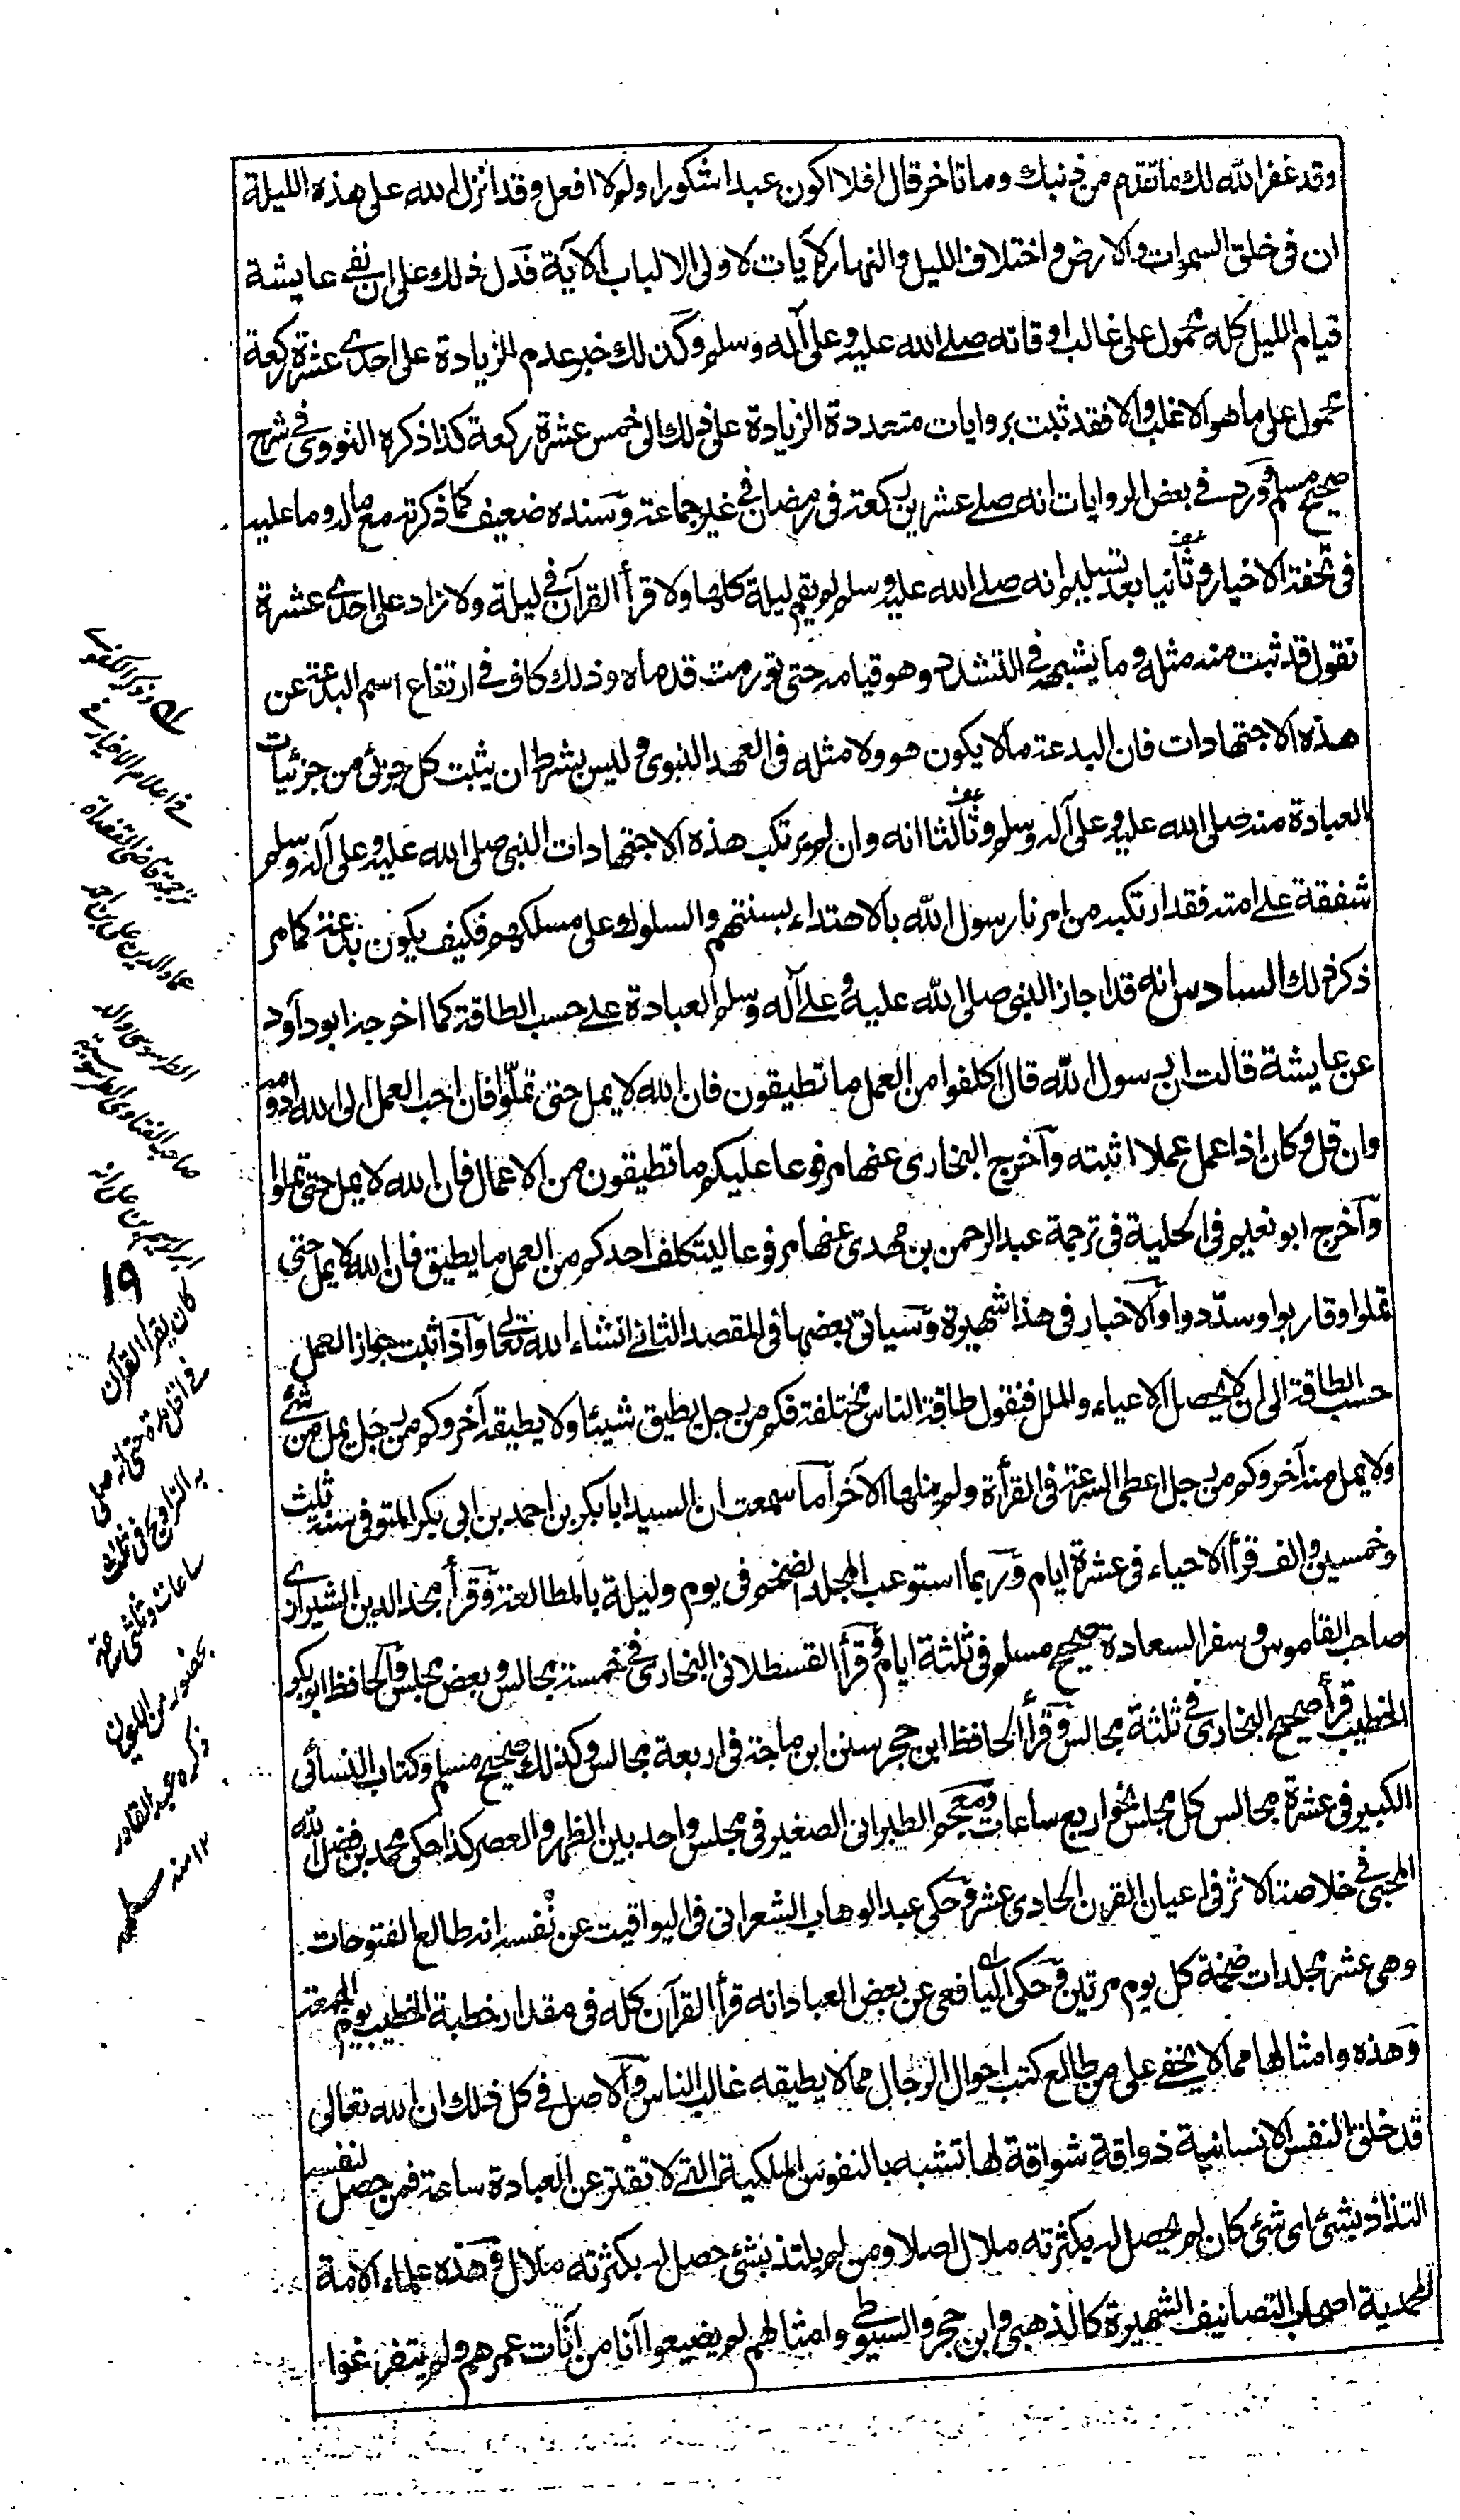 وقد غفر الله لك ما تقدم من ذنبك وما تاخر قال افلا اكون عبدا شكورا ولم لا افعل وقد انزل الله على هذه الليلة
ان فى خلق السموات والارض واختلاف الليل والنهار لآيات لاولى الالباب الآية فدل ذلك على ان نفى عايشة
قيام الليل كله محمول على غالب اوقاته صلى الله عليه وعلى آله وسلم وكذلك خبر عدم الزيادة على احدى عشرة ركعة
محمول على ما هو الاغلب والا فقد ثبت بروايات متعددة الزيادة على ذلك الى خمس عشرة ركعة كذا ذكره النووى فى شرح
صحيح مسلم وورد فى بعض الروايات انه صلى عشرين ركعة فى رمضان فى غير جماعة وسنده ضعيف كما ذكرته مع ماله وما عليه
فى تحفة الاخيار وثانيا بعد تسليم انه صلى الله عليه وسلم لم يقم ليلة كلها ولا قرأ القرآن فى ليلة ولا زاد على احدى عشرة
نقول قد ثبت منه مثله وما يشبهه فى التشدد وهو قيامه حتى تورمت قدماه وذلك كاف فى ارتفاع اسم البدعة عن
هذه الاجتهادات فان البدعة ما لا يكون هو ولا مثله فى العهد النبوى وليس بشرط ان يثبت كل جزئى من جزئيات
العبادة منه صلى الله عليه وعلى آله وسلم وثالثا انه وان لم يرتكب هذه الاجتهادات النبى صلى الله عليه وعلى آله وسلم
شفقة على امته فقد ارتكبه من امرنا رسول الله بالاهتداء بسنتهم والسلوك على مسلكهم فكيف يكون بدعة كما مر
ذكر ذلك السادس انه قد اجاز النبى صلى الله عليه وعلى آله وسلم العبادة على حسب الطاقة كما اخرجه ابو داود
عن عايشة قالت ان رسول الله قال اكلفوا من العمل ما تطيقون فان الله لا يمل حتى تملوا فان احب العمل الى الله ادومه
وان قل وكان اذا عمل عملا اثبته وآخرج البخارى عنها مرفوعا عليكم ما تطيقون من الاعمال فان الله لا يمل حتى تملوا
وآخرج ابو نعيم فى الحلية فى ترجمة عبد الرحمن بن مهدى عنها مرفوعا ليتكلف احدكم من العمل ما يطيق فان الله لا يمل حتى
تملوا وقاربوا وسددوا والاخبار فى هذا شهيرة وسياتى بعضها فى المقصد الثانى انشاء الله تعالى واذا ثبت جواز العمل
حسب الطاقة الى ان لا يحصل الاعياء والملل فنقول طاقة الناس مختلفة فكم من رجل يطيق شيئا ولا يطيقه آخر وكم من رجل يمل من شئ
ولا يمل منه آخر وكم من رجل اعطى السرعة فى القرأة ولم ينلها الآخر اما سمعت ان السيد ابا بكر بن احمد بن ابى بكر المتوفى سنة ثلث
وخمسين والف قرأ الاحياء فى عشرة ايام وربما استوعب المجلد الضخم فى يوم وليلة بالمطالعة وقرأ مجد الدين الشيرازى
صاحب القاموس وسفر السعادة صحيح مسلم فى ثلثة ايام وقرأ القسطلانى البخارى فى خمسة مجالس وبعض مجلس والحافظ ابو بكر
الخطيب قرأ صحيح البخارى فى ثلثة مجالس وقرأ الحافظ ابن حجر سنن ابن ماجة فى اربعة مجالس وكذلك صحيح مسلم وكتاب النسائى
الكبير فى عشرة مجالس كل مجلس نحو اربع ساعات ومعجم الطبرانى الصغير فى مجلس واحد بين الظهر والعصر كذا حكى محمد بن فضل الله
المحبى فى خلاصة الاثر فى اعيان القرن الحادى عشر وحكى عبد الوهاب الشعرانى فى اليواقيت عن نفسه انه طالع الفتوحات
وهى عشر مجلدات ضخمة كل يوم مرتين وحكى اليافعى عن بعض العباد انه قرأ القرآن كله فى مقدار خطبة الخطيب يوم الجمعة
وهذه وامثالها مما لا يخفى على من طالع كتب احوال الرجال مما لا يطيقه غالب الناس والاصل فى كل ذلك ان الله تعالى
قد خلق النفس الانسانية ذواقة شواقة لها تشبه بالنفوس الملكية التى لا تفتر عن العبادة ساعة فمن حصل لنفسه
التذاذ بشئ اى شئ كان لم يحصل له بكثرته ملال اصلا ومن لم يلتذ بشئ حصل له بكثرته ملال وهذه علماء الامة
المحمدية اصحاب التصانيف الشهيرة كالذهبى وابن حجر والسيوطى وامثالهم لم يضيعوا آنا من آنات عمرهم ولم يتفرغوا
وذكر الكفوى
فى اعلام الاخيار فى
ترجمة قاضى القضاة
عماد الدين على بن احمد
الطرسوسى والد
صاحب الفتاوى الطرسوسية
ابراهيم بن على انه
19
كان يقرأ القرآن
فى اقل مدة حتى انه صلى
به التراويح فى ثلاث
ساعات وثلثى ساعة
بحضور من الاعيان
ذكره عبد القادر
١٢ منه